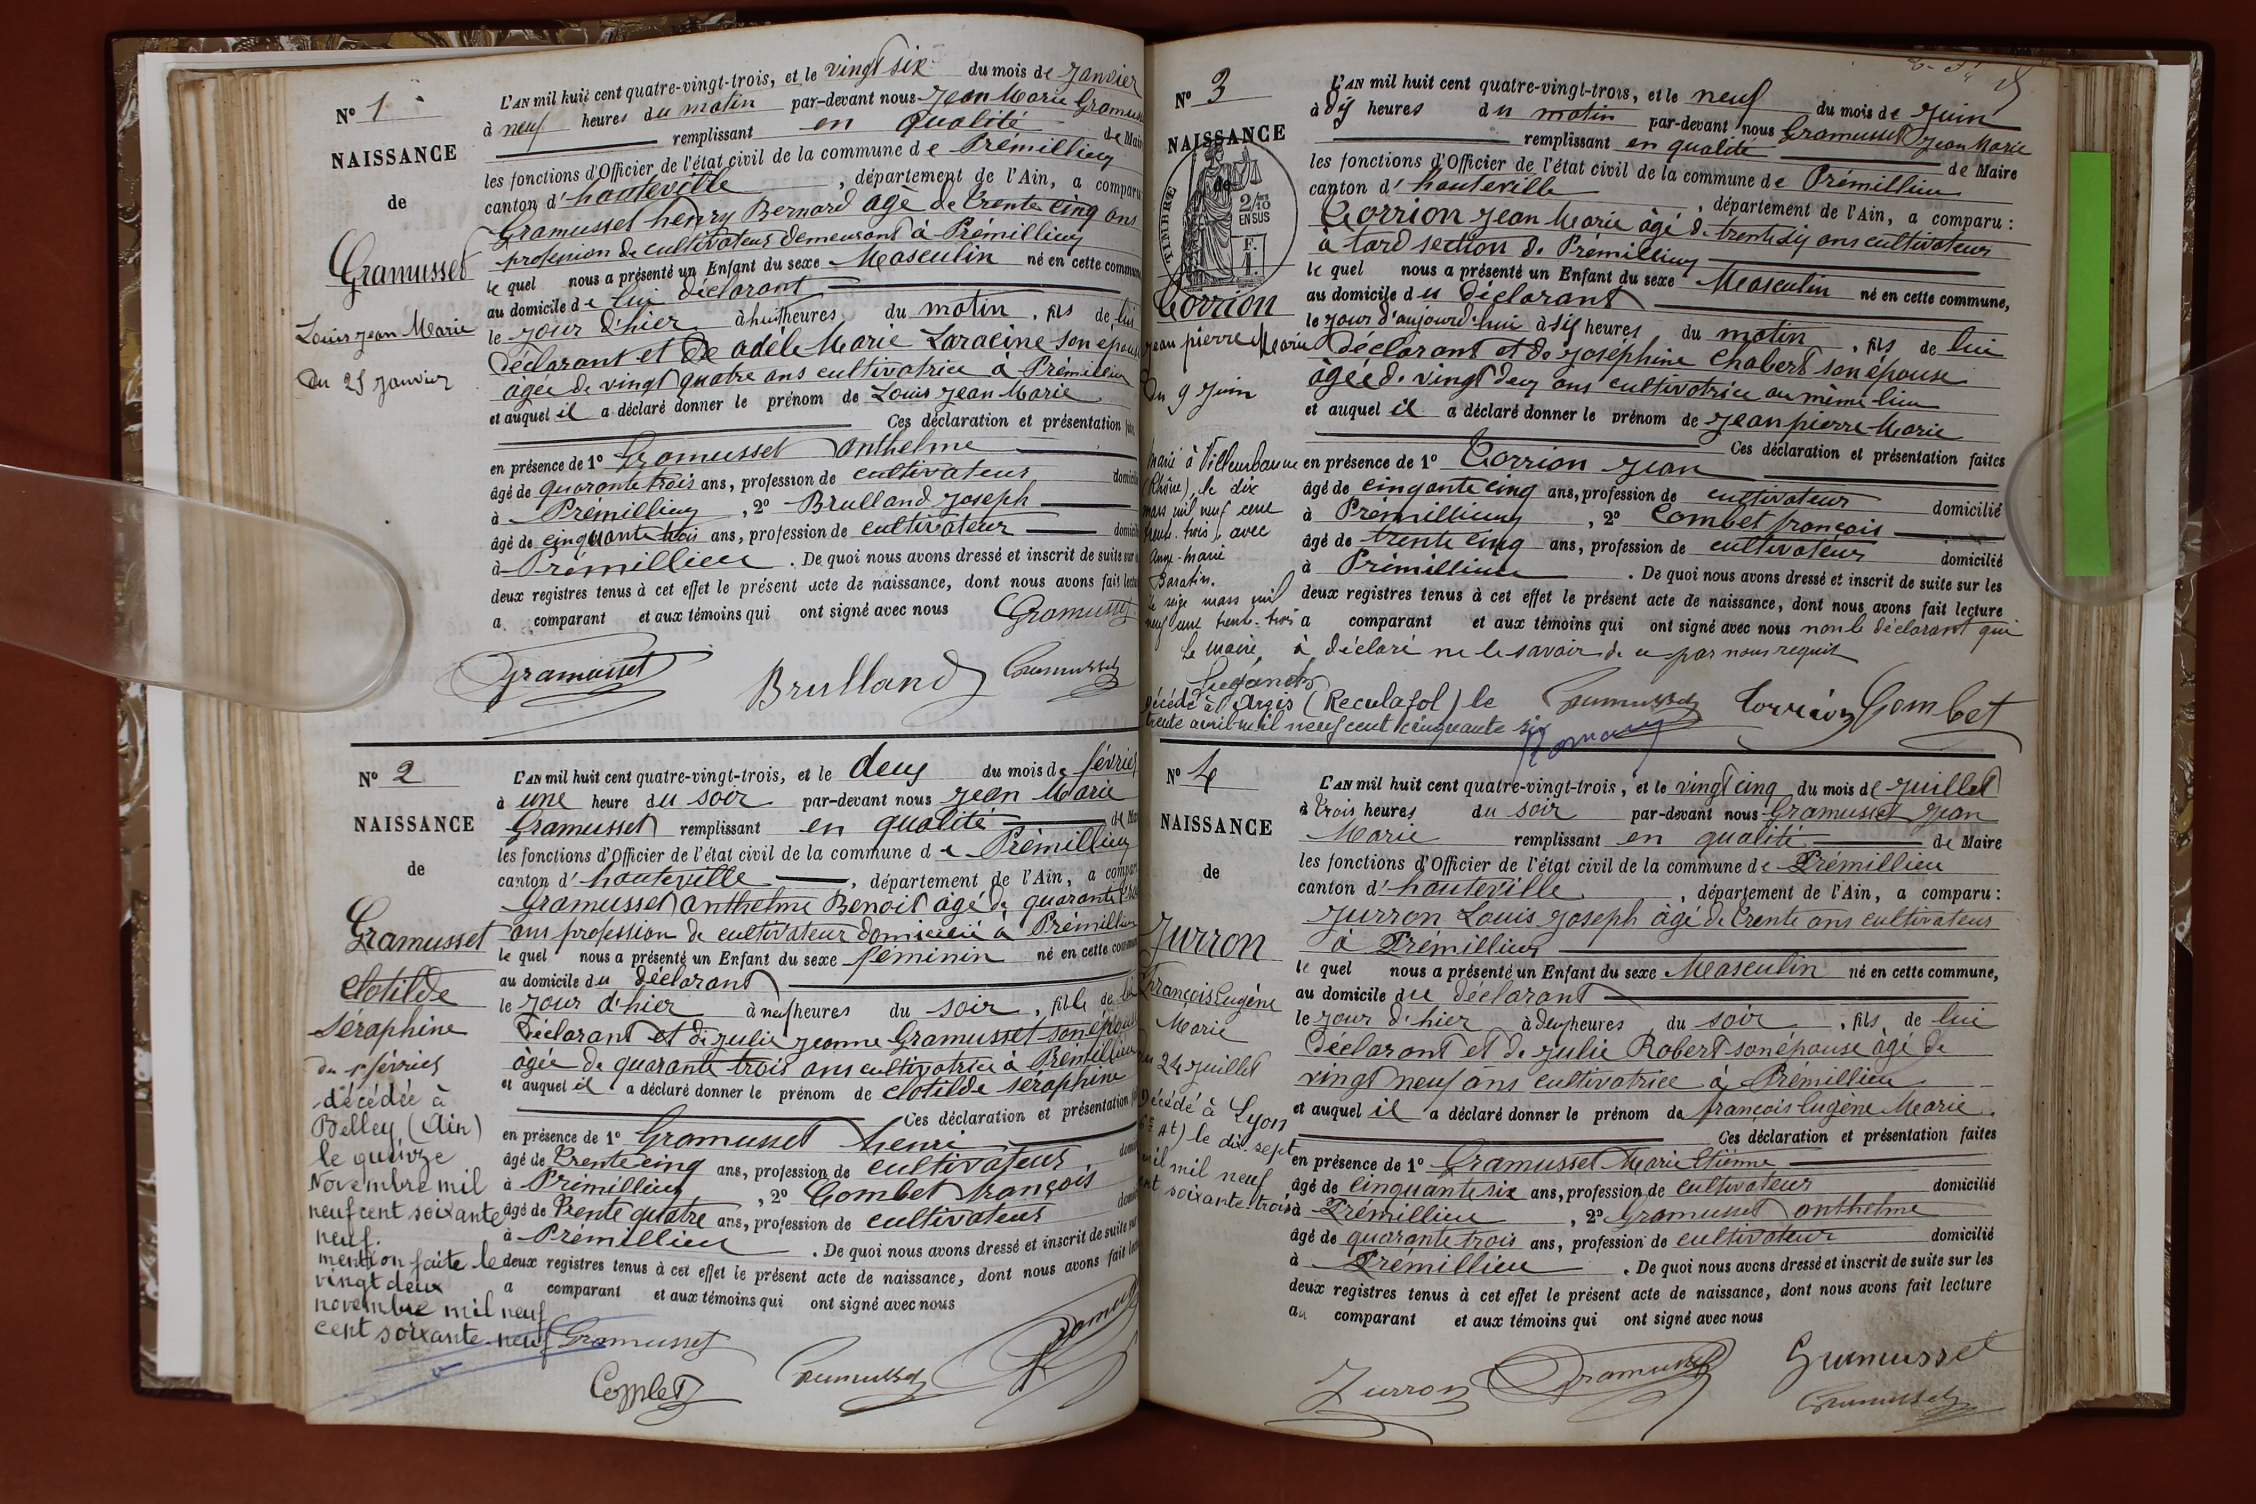 N° 1
NAISSANCE
de
Gramusset
Louis Jean Marie
Du 25 Janvier
L'AN mil huit cent quatre-vingt-trois, et le vingt six du mois de Janvier
à neuf heures du matin par-devant nous Jean Marie Gramusset
remplissant en qualité de Maire
les fonctions d'Officier de l'état civil de la commune de Prémillieu
canton d'hauteville, département de l'Ain, a comparu
Gramusset henry Bernard âgé de trente cinq ans
profession de cultivateur demeurant à Prémillieu
le quel nous a présenté un Enfant du sexe Masculin né en cette commune
au domicile de lui déclarant
le jour d'hier à huit heures du matin, fils de lui
déclarant et de adèle Marie Laracine son épouse
âgée de vingt quatre ans cultivatrice à Prémillieu
et auquel il a déclaré donner le prénom de Louis Jean Marie
Ces déclaration et présentation faites
en présence de 1° Gramusset anthelme
âgé de quarante trois ans, profession de cultivateur domicilié
à Prémillieu, 2° Brulland Joseph
âgé de cinquante trois ans, profession de cultivateur domicilié
à Prémillieu. De quoi nous avons dressé et inscrit de suite sur
deux registres tenus à cet effet le présent acte de naissance, dont nous avons fait lecture
a comparant et aux témoins qui ont signé avec nous Gramusset
Gramusset Brulland Gramusset
N° 2
NAISSANCE
de
Gramusset
Clotilde
Séraphine
du 1er février
décédée à
Belley (Ain)
le quinze
Novembre mil
neuf cent soixante
neuf.
mention faite le
vingt deux
novembre mil neuf
cent soixante neuf
L'AN mil huit cent quatre-vingt-trois, et le deux du mois de février
à une heure du soir par-devant nous Jean Marie
Gramusset remplissant en qualité de Maire
les fonctions d'Officier de l'état civil de la commune de Prémillieu
canton d'hauteville, département de l'Ain, a comparu
Gramusset anthelme Benoit âgé de quarante trois
ans profession de cultivateur domicilié à Prémillieu
le quel nous a présenté un Enfant du sexe féminin né en cette commune
au domicile du déclarant
le jour d'hier à neuf heures du soir, fille de lui
déclarant et de julie jeanne Gramusset son épouse
âgée de quarante trois ans cultivatrice à Prémillieu
et auquel il a déclaré donner le prénom de clotilde séraphine
Ces déclaration et présentation
en présence de 1° Gramusset henri
âgé de trente cinq ans, profession de cultivateur
à Prémillieu, 2° Combet françois
âgé de trente quatre ans, profession de cultivateur
à Prémillieu. De quoi nous avons dressé et inscrit de suite sur
deux registres tenus à cet effet le présent acte de naissance, dont nous avons fait
a comparant et aux témoins qui ont signé avec nous
Gramusset
Combet Gramusset
N° 3
NAISSANCE
de
TIMBRE
2/10
EN SUS
F.
1.
Corrion
Jean pierre Marie
Du 9 Juin
marié à Villeurbanne
(Rhône), le dix
mars mil neuf cent
trente-trois, avec
Anne-marie
Baratin.
Le seize mars mil
neuf cent trente-trois
Le maire,
Décédé à Argis (Reculafol) le
trente avril mil neuf cent cinquante six
L'AN mil huit cent quatre-vingt-trois, et le neuf du mois de Juin
à dix heures du matin par-devant nous Gramusset Jean Marie
remplissant en qualité de Maire
les fonctions d'Officier de l'état civil de la commune de Prémillieu
canton d'hauteville, département de l'Ain, a comparu :
Corrion Jean Marie âgé de trente six ans cultivateur
à tard section de Prémillieu
le quel nous a présenté un Enfant du sexe Masculin né en cette commune,
au domicile du déclarant
le jour d'aujourd'hui à six heures du matin, fils de lui
déclarant et de Joséphine Chabert son épouse
âgée de vingt deux ans cultivatrice au même lieu
et auquel il a déclaré donner le prénom de Jean pierre Marie
Ces déclaration et présentation faites
en présence de 1° Corrion Jean
âgé de cinqante cinq ans, profession de cultivateur domicilié
à Prémillieu, 2° Combet françois
âgé de trente cinq ans, profession de cultivateur domicilié
à Prémillieu. De quoi nous avons dressé et inscrit de suite sur les
deux registres tenus à cet effet le présent acte de naissance, dont nous avons fait lecture
a comparant et aux témoins qui ont signé avec nous non le déclarant qui
à déclaré ne le savoir de ce par nous requit
Gramusset Corrion Combet
N° 4
NAISSANCE
de
Jurron
François Eugène
Marie
du 24 juillet
Décédé à Lyon
le dix-sept
mil neuf
cent soixante trois
L'AN mil huit cent quatre-vingt-trois, et le vingt cinq du mois de Juillet
à trois heures du soir par-devant nous Gramusset Jean
Marie remplissant en qualité de Maire
les fonctions d'Officier de l'état civil de la commune de Prémillieu
canton d'hauteville, département de l'Ain, a comparu :
Jurron Louis Joseph âgé de trente ans cultivateur
à Prémillieu
le quel nous a présenté un Enfant du sexe Masculin né en cette commune,
au domicile du déclarant
le jour d'hier à deux heures du soir, fils de lui
déclarant et de Julie Robert son épouse âgé de
vingt neuf ans cultivatrice à Prémillieu
et auquel il a déclaré donner le prénom de françois Eugène Marie
Ces déclaration et présentation faites
en présence de 1° Gramusset Marie Etienne
âgé de cinquante six ans, profession de cultivateur domicilié
à Prémillieu, 2° Gramusset anthelme
âgé de quarante trois ans, profession de cultivateur domicilié
à Prémillieu. De quoi nous avons dressé et inscrit de suite sur les
deux registres tenus à cet effet le présent acte de naissance, dont nous avons fait lecture
au comparant et aux témoins qui ont signé avec nous
Jurron Gramusset Gramusset
Gramusset